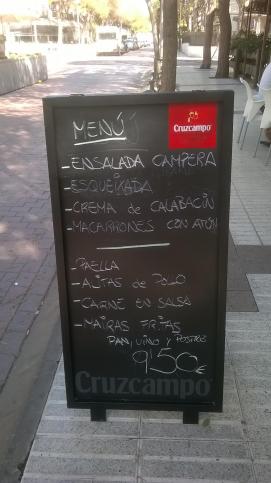 MENÚ
Cruzcampo
-ENSALADA CAMPERA
-ESQUEIXADA
-CREMA de CALABACIN
-MACARRONES CON ATÚN
-PAELLA
-ALITAS de POLLO
-CARNE EN SALSA
-MAIRAS FRITAS
PAN, VINO y POSTRES
9'50€
Cruzcampo